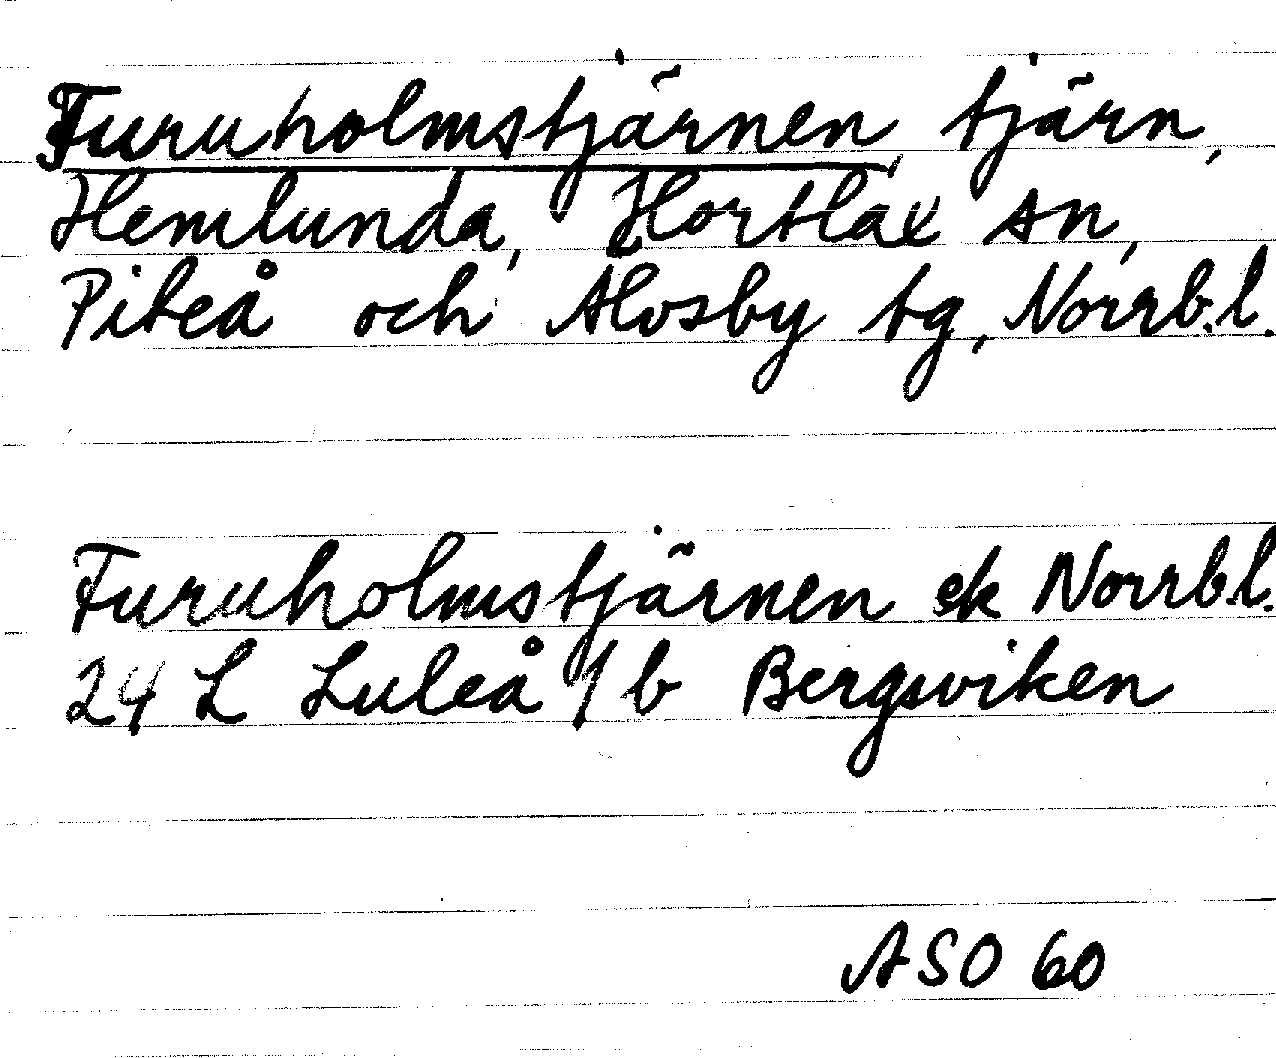 Furuholmstjärnen, tjärn,
Hemlunda, Hortlax sn,
Piteå och Älvsby tg, Norrb.l.
Furuholmstjärnen ek Norrb.l.
24 L Luleå 1 b Bergsviken
ASO 60